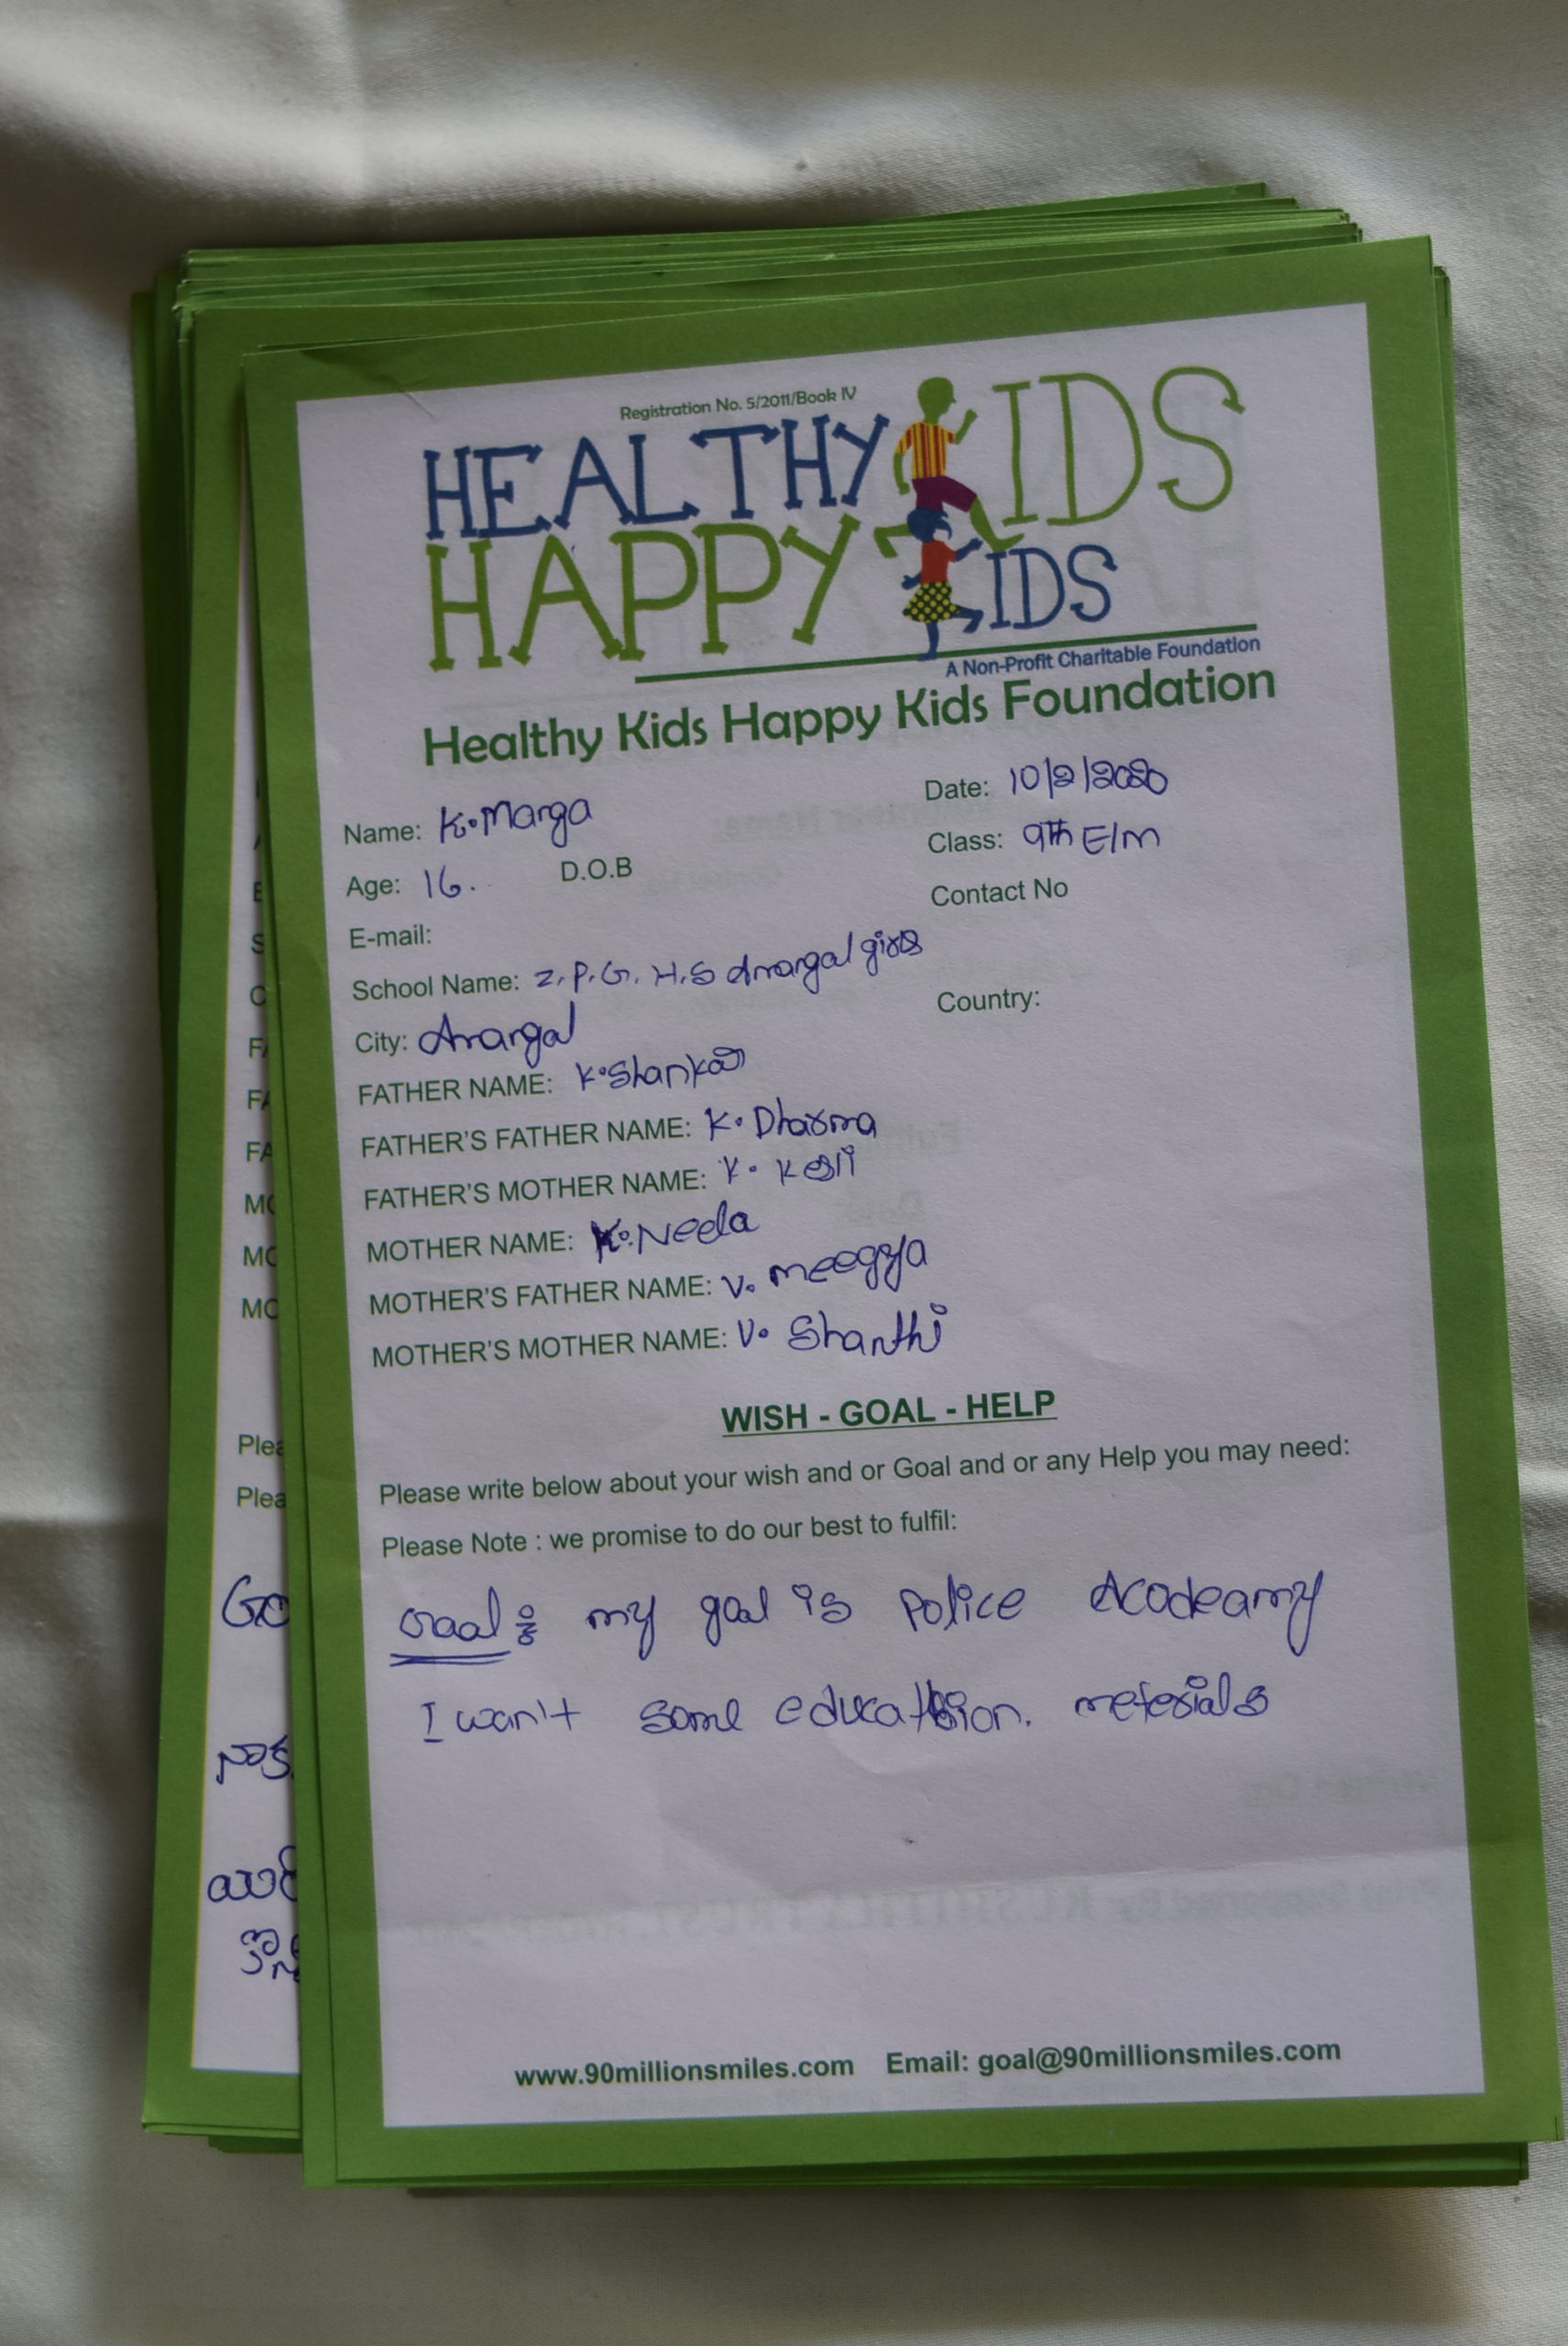 Registration No. 5/2011/Book IV
HEALTHY KIDS
HAPPY KIDS
A Non-Profit Charitable Foundation
Healthy Kids Happy Kids Foundation
Name: K. Marga Date: 10/2/2020
Age: 16. D.O.B Class: 9th E/m
E-mail: Contact No
School Name: Z.P.G.H.S Arangal girls
City: Arangal Country:
FATHER NAME: K. Shankar
FATHER'S FATHER NAME: K. Dharma
FATHER'S MOTHER NAME: K.
MOTHER NAME: K. Neela
MOTHER'S FATHER NAME: V. meegya
MOTHER'S MOTHER NAME: V. Shanthi
WISH - GOAL - HELP
Please write below about your wish and or Goal and or any Help you may need:
Please Note : we promise to do our best to fulfil:
Goal : my goal is police Acodeamy
I wan't some education. meterials
www.90millionsmiles.com Email: goal@90millionsmiles.com
Plea
Plea
Go
నాక